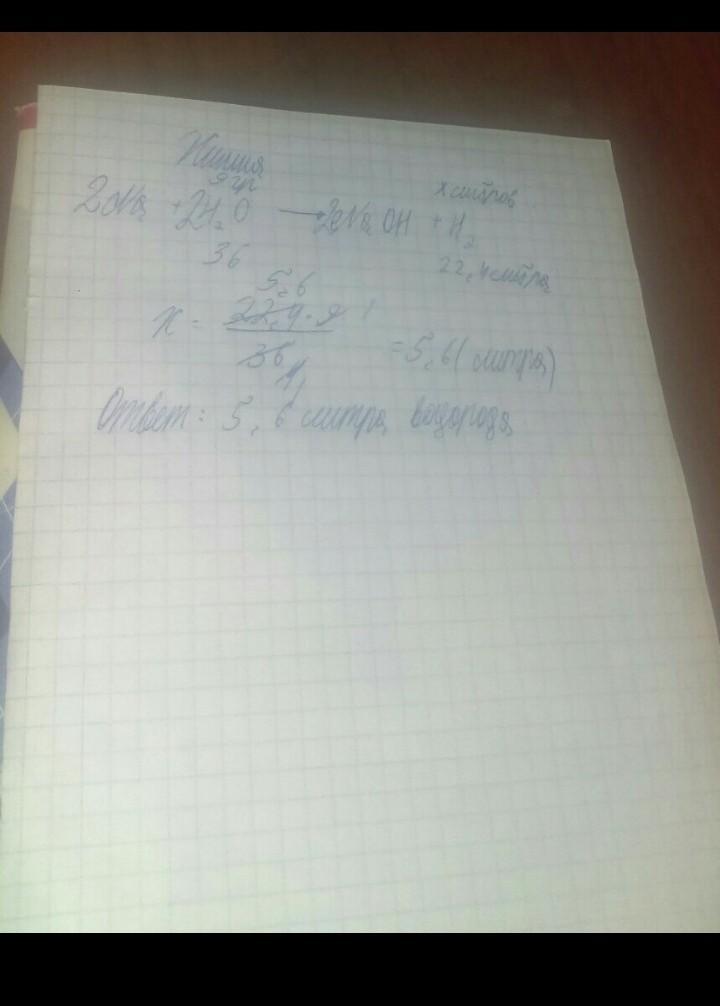 Химия
9 гр x литров
2Na + 2H₂O → 2NaOH + H₂
36 22,4 литра
5,6
x = 22,4 · 9 1 = 5,6 (литра)
36 4
Ответ: 5,6 литра водорода